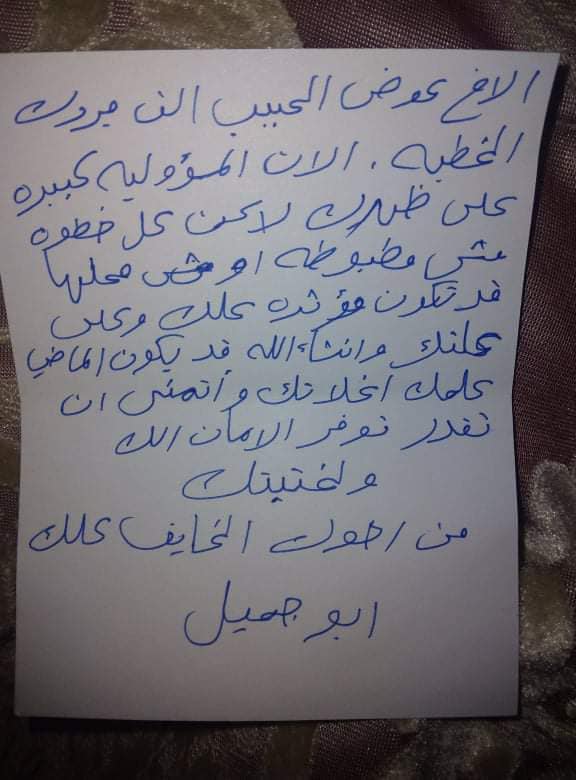 الاخ عوض الحبيب الف مبروك
الخطبه . الان المسؤوليه كبيره
على ظهرك لانك كل خطوه
مش مظبوطه او مش محلها
قد تكون مؤثره علك وعلى
عيلتك وانشاءالله قد يكون الماضي
علمك اخلاتك واتمنى ان
تقدر توفر الامان الك
ولخيتيتك
من اخوك الخايف علك
ابو جميل